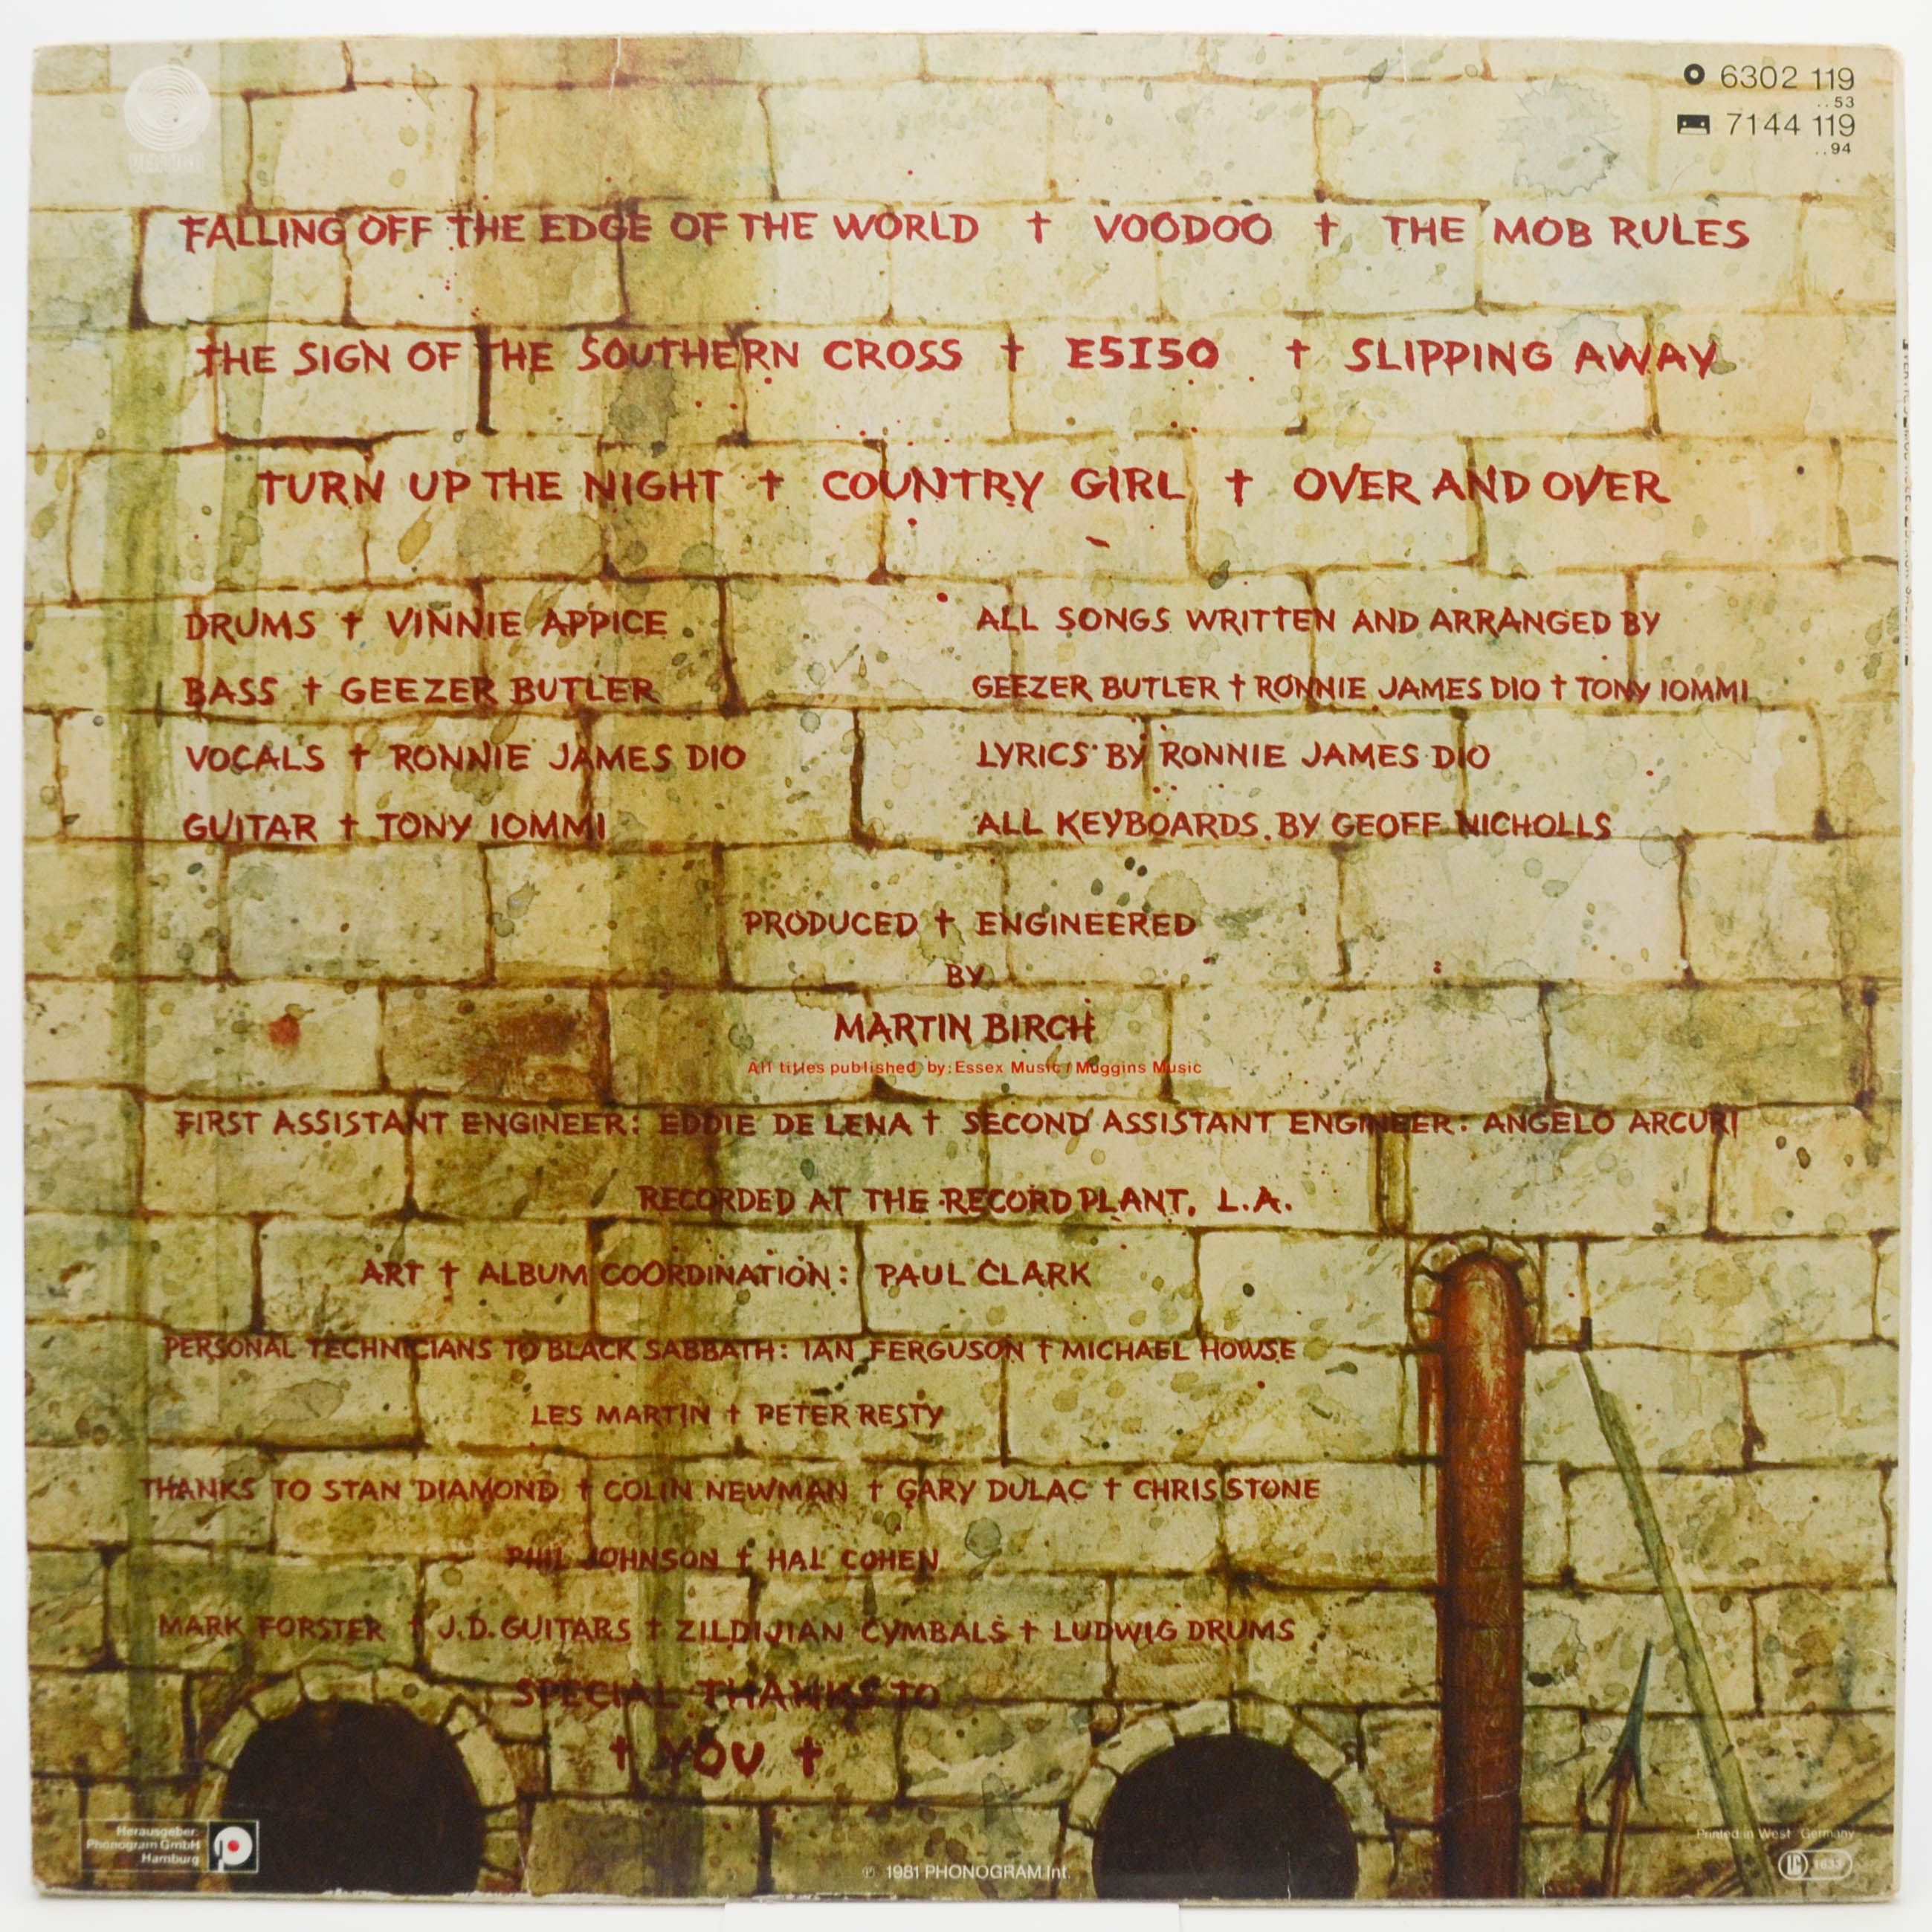 VERTIGO
6302 119
..53
7144 119
..94
FALLING OFF THE EDGE OF THE WORLD † VOODOO † THE MOB RULES
THE SIGN OF THE SOUTHERN CROSS † E5150 † SLIPPING AWAY
TURN UP THE NIGHT † COUNTRY GIRL † OVER AND OVER
DRUMS † VINNIE APPICE
BASS † GEEZER BUTLER
VOCALS † RONNIE JAMES DIO
GUITAR † TONY IOMMI
ALL SONGS WRITTEN AND ARRANGED BY
GEEZER BUTLER † RONNIE JAMES DIO † TONY IOMMI
LYRICS BY RONNIE JAMES DIO
ALL KEYBOARDS BY GEOFF NICHOLLS
PRODUCED † ENGINEERED
BY
MARTIN BIRCH
All titles published by: Essex Music / Muggins Music
FIRST ASSISTANT ENGINEER: EDDIE DE LENA † SECOND ASSISTANT ENGINEER: ANGELO ARCURI
RECORDED AT THE RECORD PLANT, L.A.
ART † ALBUM COORDINATION: PAUL CLARK
PERSONAL TECHNICIANS TO BLACK SABBATH: IAN FERGUSON † MICHAEL HOWSE
LES MARTIN † PETER RESTY
THANKS TO STAN DIAMOND † COLIN NEWMAN † GARY DULAC † CHRIS STONE
PHIL JOHNSON † HAL COHEN
MARK FORSTER † J.D. GUITARS † ZILDIJIAN CYMBALS † LUDWIG DRUMS
SPECIAL THANKS TO
† YOU †
Herausgeber
Phonogram GmbH
Hamburg
℗ 1981 PHONOGRAM Int.
Printed in West Germany
LC 1633